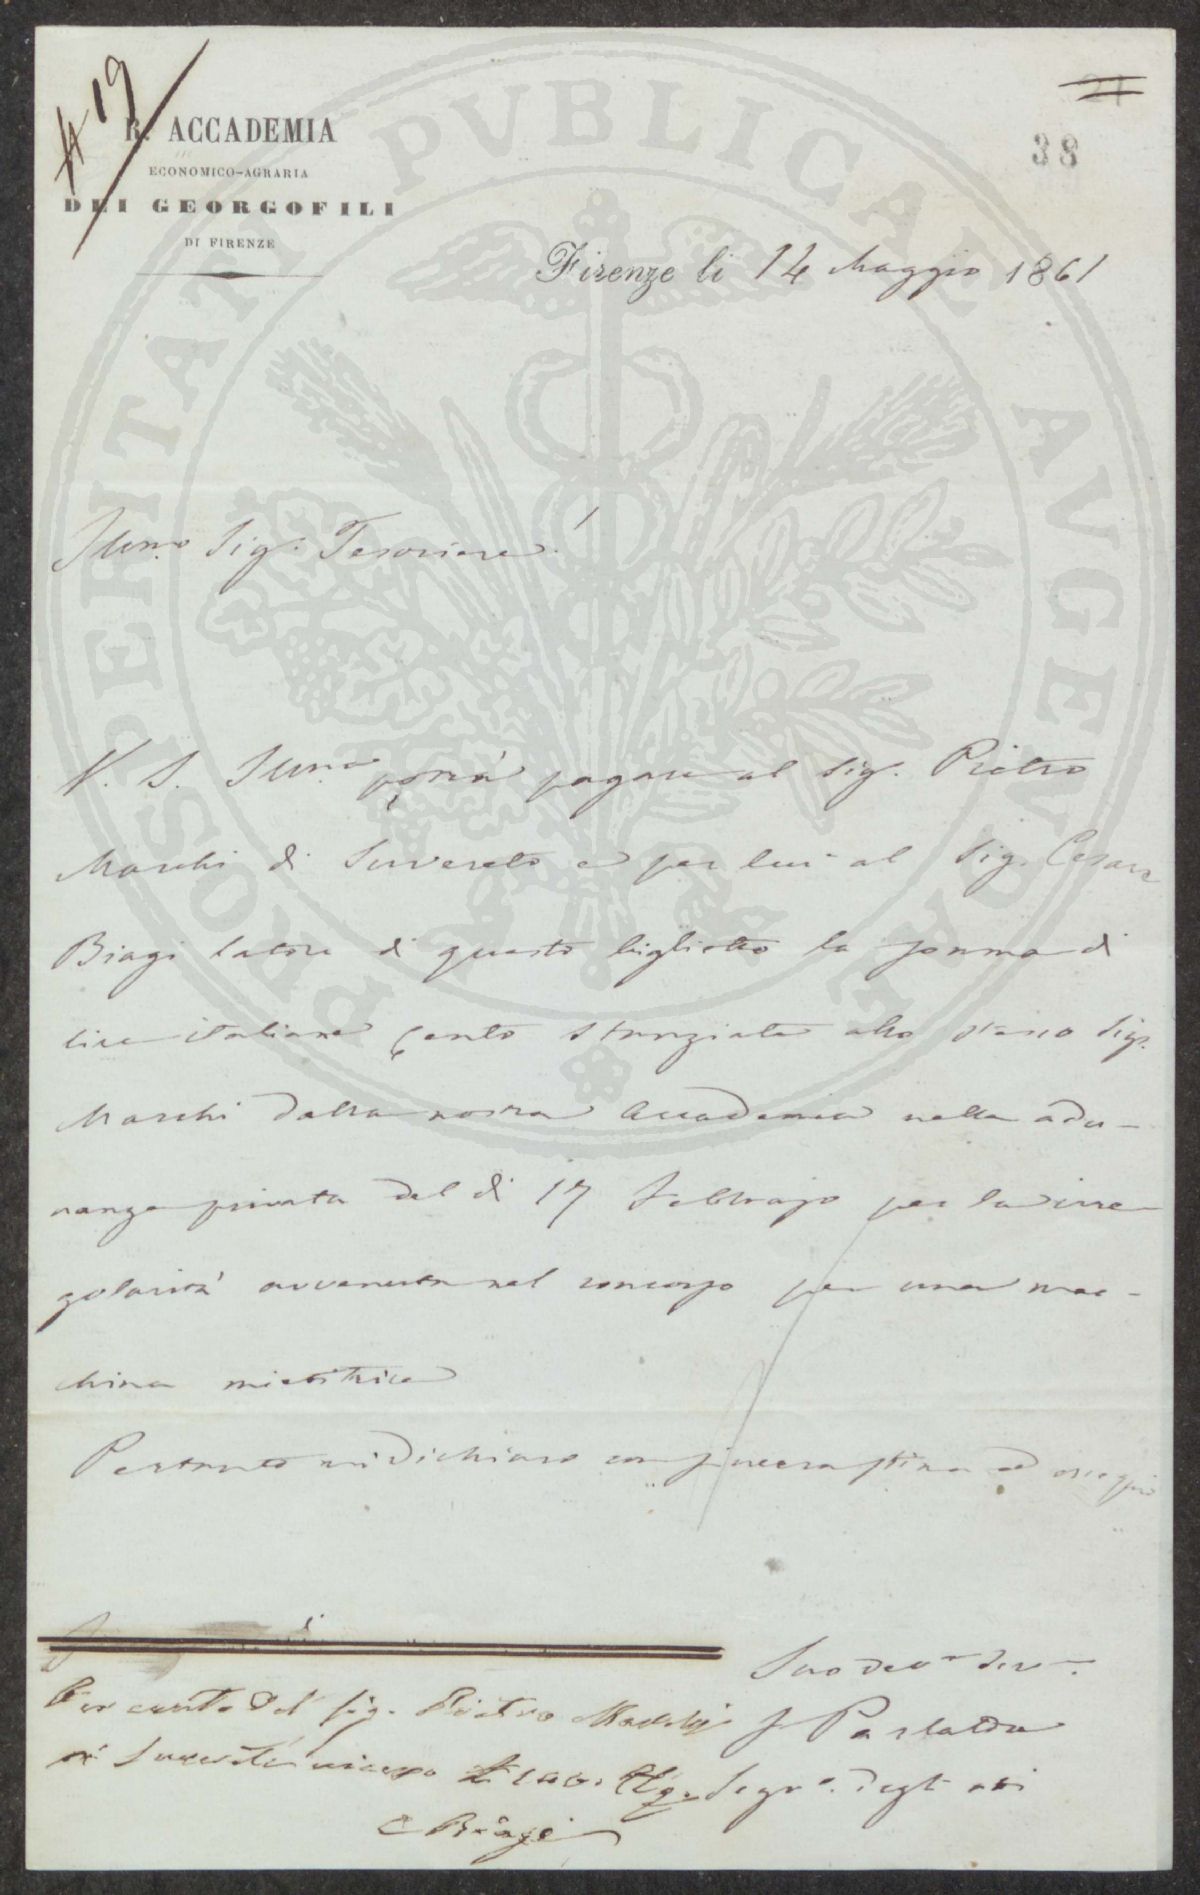 # 19
R. ACCADEMIA
ECONOMICO-AGRARIA
DEI GEORGOFILI
DI FIRENZE
38
Firenze li 14 Maggio 1861
Illmo. Sig. Tesoriere
V. S. Illma. potrà pagare al Sig. Pietro
Marchi di Suvereto e per lui al Sig. Cesare
Biagi latore di questo biglietto la somma di
lire italiane cento stanziata allo stesso Sigr.
Marchi dalla nostra Accademia nella adu-
nanza privata del dì 17 Febbrajo per la irre-
golarità avvenuta nel concorso per una mac-
china mietitrice
Pertanto mi dichiaro con sincera stima ed ossequio
Suo devo. serv.
Segro. degli atti
Per conto del Sig. Pietro Marchi
di Suvereto ricevo
C Biagi
PROSPERITATI PVBLICAE AVGENDAE